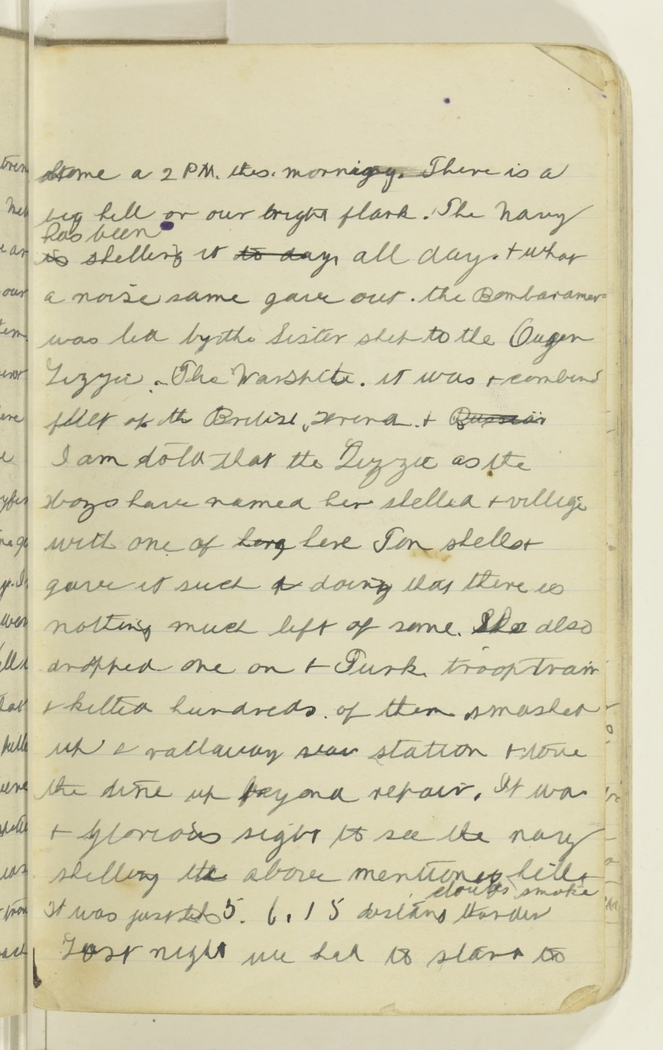 home a 2 PM. this. morning. There is a
big hill or our bright flank. The Navy
has been
is shelling it to day, all day. + what
a noise same gave out. the Bombarament
was led by the Sister ship to the Queen
Lizzie. The Warspite. it was + combind
fleet of the British, Frend. + Russian
I am dold that the Lizzie as the
boys have named her shelled + village
with one of here Ton shells +
gave it such a doing that there is
nothing much left of same. She also
dropped one on + Turk. troop train
+ killed hundreds. of them smashed
up a railaway station + tore
the line up beyond repair. It was
+ glorious sight to see the navy
shelling the above mention hill +
clouds smoke
it was just 5. 6, 15 distant
Last night we had to start to